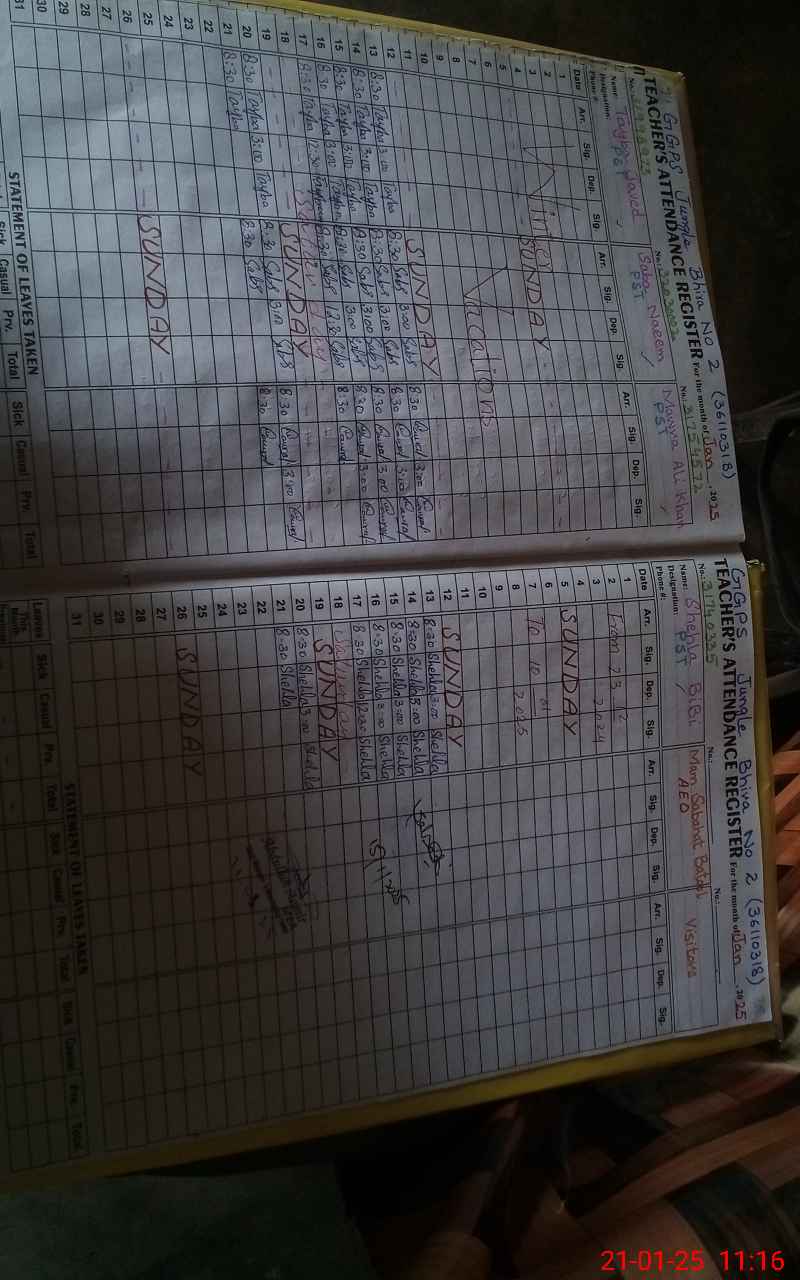 GGPS Jungle Bhiva NO 2 (36110318)
TEACHER'S ATTENDANCE REGISTER For the month of Jan. 2025
No.: No.: 31754572
Name: Tayba Javed Saba Naeem Ali Khan
Designation: PST PST PST
Phone #:
Date Arr. Sig. Dep. Sig. Arr. Sig. Dep. Sig. Arr. Sig. Dep. Sig.
1
2
3
4
5 SUNDAY
6 Winter Vacations
7
8
9
10
11
12 SUNDAY
13 8:30 Tayba 3:00 Tayba 8:30 Saba 3:00 Saba 8:30 3:00
14 8:30 Tayba 3:00 Tayba 8:30 Saba 3:00 Saba 8:30 3:00
15 8:30 Tayba 3:00 Tayba 8:30 Saba 3:00 Saba 8:30 3:00
16 8:30 Tayba 3:00 Tayba 8:30 Saba 3:00 Saba 8:30 3:00
17 8:30 Tayba 12:30 Tayba 8:30 Saba 12:30 Saba 8:30
18
19 SUNDAY
20 8:30 Tayba 3:00 Tayba 8:30 Saba 3:00 Saba 8:30 3:00
21 8:30 Tayba 8:30 Saba 8:30
22
23
24
25
26 SUNDAY
27
28
29
30
31
STATEMENT OF LEAVES TAKEN
Sick Casual Prv. Total Sick Casual Prv. Total
GGPS Jungle Bhiva No 2 (36110318)
TEACHER'S ATTENDANCE REGISTER For the month of Jan. 2025
No.: 31740335 No.: No.:
Name: Shehla BiBi Mam Sabahat Batool Visitors
Designation: PST AEO
Phone #:
Date Arr. Sig. Dep. Sig. Arr. Sig. Dep. Sig. Arr. Sig. Dep. Sig.
1
2 From 23 12
3 2024
4
5 SUNDAY
6
7 To 10 01
8 2025
9
10
11
12 SUNDAY
13 8:30 Shehla 3:00 Shehla
14 8:30 Shehla 3:00 Shehla
15 8:30 Shehla 3:00 Shehla
16 8:30 Shehla 3:00 Shehla
17 8:30 Shehla 12:30 Shehla
18 Saturday
19 SUNDAY
20 8:30 Shehla 3:00 Shehla
21 8:30 Shehla
22
23
24
25
26 SUNDAY
27
28
29
30
31
STATEMENT OF LEAVES TAKEN
Leaves Sick Casual Prv. Total Sick Casual Prv. Total Sick Casual Prv. Total
This Month
21-01-25 11:16